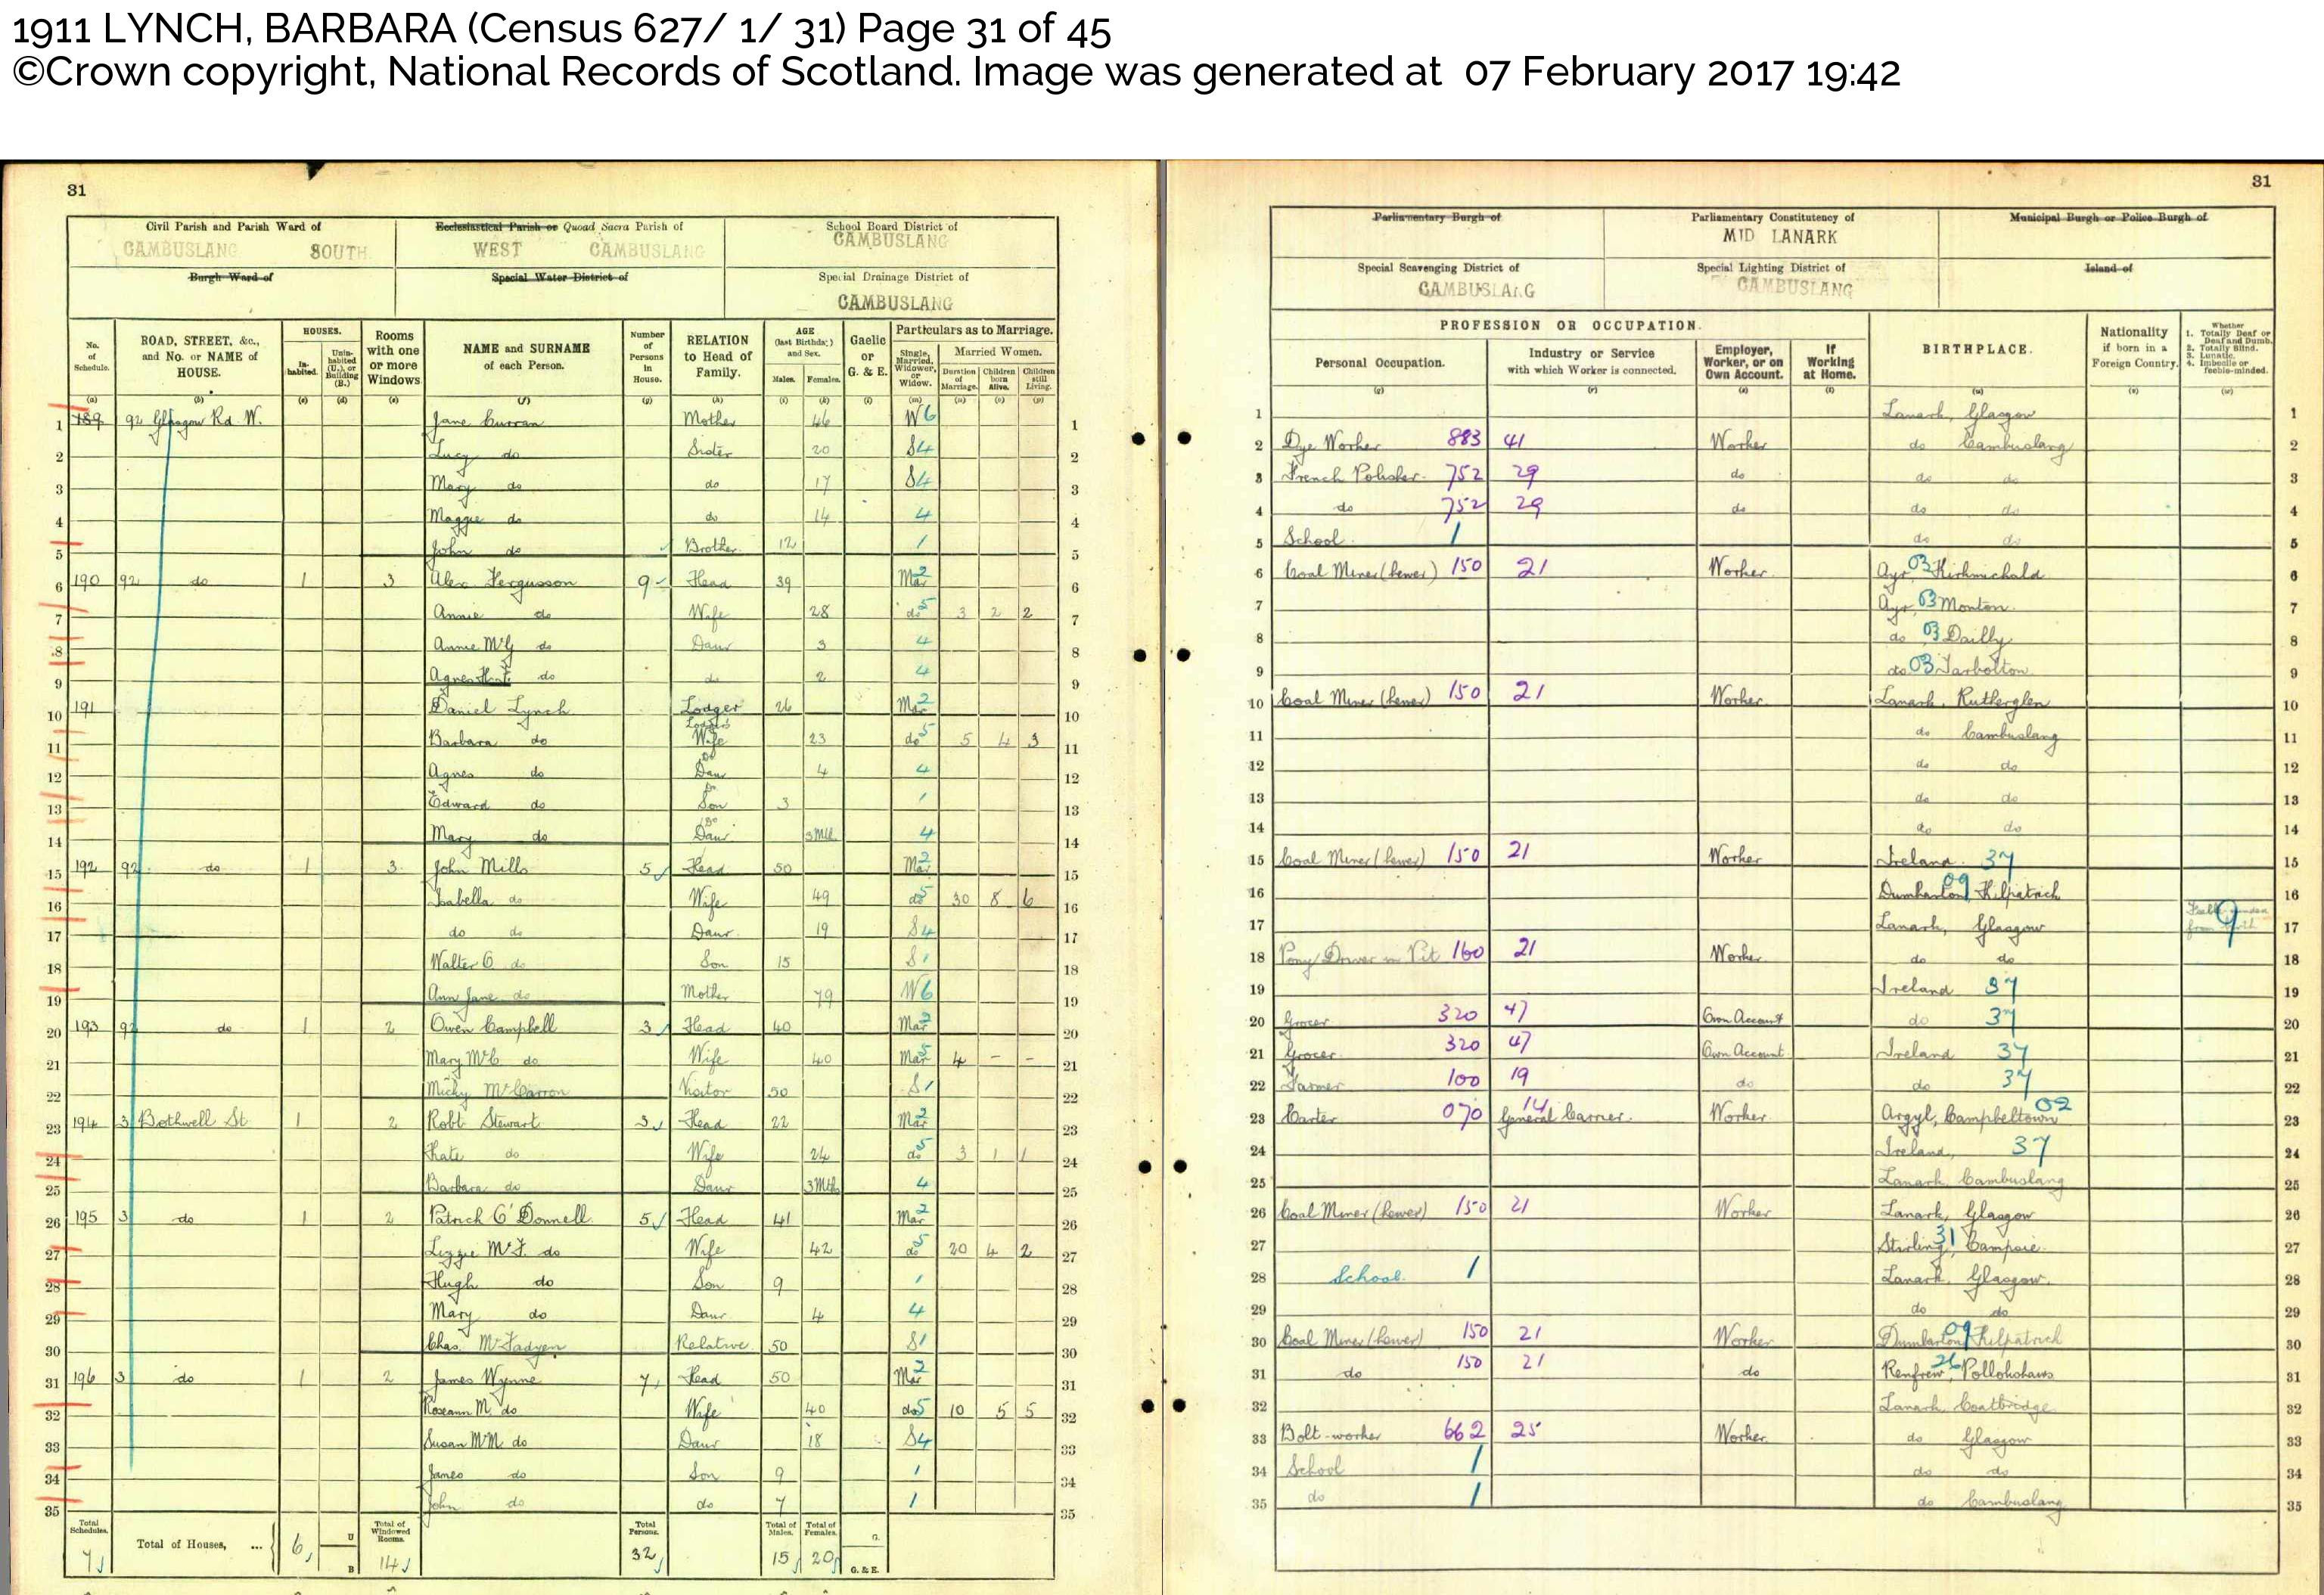 1911 LYNCH, BARBARA (Census 627/ 1/ 31) Page 31 of 45
©Crown copyright, National Records of Scotland. Image was generated at 07 February 2017 19:42
31
31
Civil Parish and Parish Ward of
CAMBUSLANG SOUTH
Ecclesiastical Parish or Quoad Sacra Parish of
WEST CAMBUSLANG
School Board District of
CAMBUSLANG
Burgh Ward of
Special Water District of
Special Drainage District of
CAMBUSLANG
No. of Schedule.
ROAD, STREET, &c., and No. or NAME of HOUSE.
HOUSES.
Inhabited.
Uninhabited (U.), or Building (B.)
Rooms with one or more Windows
NAME and SURNAME of each Person.
Number of Persons in House.
RELATION to Head of Family.
AGE (last Birthday) and Sex.
Males. Females.
Gaelic or G. & E.
Particulars as to Marriage.
Single, Married, Widower, or Widow.
Married Women.
Duration of Marriage.
Children born Alive.
Children still Living.
1 189 92 Glasgow Rd W. Jane Curran Mother 46 W 6 1
2 Lucy do Sister 20 S 4 2
3 Mary do do 17 S 4 3
4 Maggie do do 14 4 4
5 John do Brother 12 1 5
6 190 92 do 1 3 Alex Fergusson 9 Head 39 Mar 2 6
7 Annie do Wife 28 do 5 3 2 2 7
8 Annie McG do Daur 3 4 8
9 Agnes do do 2 4 9
10 191 Daniel Lynch Lodger 26 Mar 2 10
11 Barbara do Lodgers Wife 23 do 5 5 4 3 11
12 Agnes do Do Daur 4 4 12
13 Edward do Do Son 3 1 13
14 Mary do Do Daur 3 Mth 4 14
15 192 92 do 1 3 John Mills 5 Head 50 Mar 2 15
16 Isabella do Wife 49 do 5 30 8 6 16
17 do do Daur 19 S 4 17
18 Walter C do Son 15 S 1 18
19 Ann Jane do Mother 79 W 6 19
20 193 92 do 1 2 Owen Campbell 3 Head 40 Mar 2 20
21 Mary McC do Wife 40 Mar 5 4 - - 21
22 Micky McCarron Visitor 50 S 1 22
23 194 3 Bothwell St 1 2 Robt Stewart 3 Head 22 Mar 2 23
24 Kate do Wife 24 do 5 3 1 1 24
25 Barbara do Daur 3 Mth 4 25
26 195 3 do 1 2 Patrick O'Donnell 5 Head 41 Mar 2 26
27 Lizzie McF. do Wife 42 do 5 20 4 2 27
28 Hugh do Son 9 1 28
29 Mary do Daur 4 4 29
30 Chas. McFadyen Relative 50 S 1 30
31 196 3 do 1 2 James Wynne 7 Head 50 Mar 2 31
32 Roseann M. do Wife 40 do 5 10 5 5 32
33 Susan McM do Daur 18 S 4 33
34 James do Son 9 1 34
35 John do do 7 1 35
Total Schedules. 7
Total of Houses, ... 6 U B
Total of Windowed Rooms. 14
Total Persons. 32
Total of Males. 15
Total of Females. 20
G.
G. & E.
Parliamentary Burgh of
Parliamentary Constitutency of
MID LANARK
Municipal Burgh or Police Burgh of
Special Scavenging District of
CAMBUSLANG
Special Lighting District of
CAMBUSLANG
Island of
PROFESSION OR OCCUPATION.
Personal Occupation.
Industry or Service with which Worker is connected.
Employer, Worker, or on Own Account.
If Working at Home.
BIRTHPLACE.
Nationality if born in a Foreign Country.
Whether 1. Totally Deaf or Deaf and Dumb. 2. Totally Blind. 3. Lunatic. 4. Imbecile or feeble-minded.
1 Lanark, Glasgow 1
2 Dye Worker 883 41 Worker do Cambuslang 2
3 French Polisher 752 29 do do do 3
4 do 752 29 do do do 4
5 School 1 do do 5
6 Coal Miner (hewer) 150 21 Worker Ayr 03 Kirkmichald 6
7 Ayr 03 Monton 7
8 do 03 Dailly 8
9 do 03 Tarbolton 9
10 Coal Miner (hewer) 150 21 Worker Lanark, Rutherglen 10
11 do Cambuslang 11
12 do do 12
13 do do 13
14 do do 14
15 Coal Miner (hewer) 150 21 Worker Ireland 37 15
16 Dumbarton 09 Kilpatrick 16
17 Lanark, Glasgow 9 17
18 Pony Driver in Pit 160 21 Worker do do 18
19 Ireland 37 19
20 Grocer 320 47 Own Account do 37 20
21 Grocer 320 47 Own Account Ireland 37 21
22 Farmer 100 19 do do 37 22
23 Carter 070 14 General Carrier Worker Argyl, Campbeltown 02 23
24 Ireland, 37 24
25 Lanark Cambuslang 25
26 Coal Miner (hewer) 150 21 Worker Lanark, Glasgow 26
27 Stirling 31 Campsie 27
28 School 1 Lanark, Glasgow 28
29 do do 29
30 Coal Miner (hewer) 150 21 Worker Dumbarton 09 Kilpatrick 30
31 do 150 21 do Renfrew 26 Pollokshaws 31
32 Lanark Coatbridge 32
33 Bolt-worker 662 25 Worker do Glasgow 33
34 School 1 do do 34
35 do 1 do Cambuslang 35